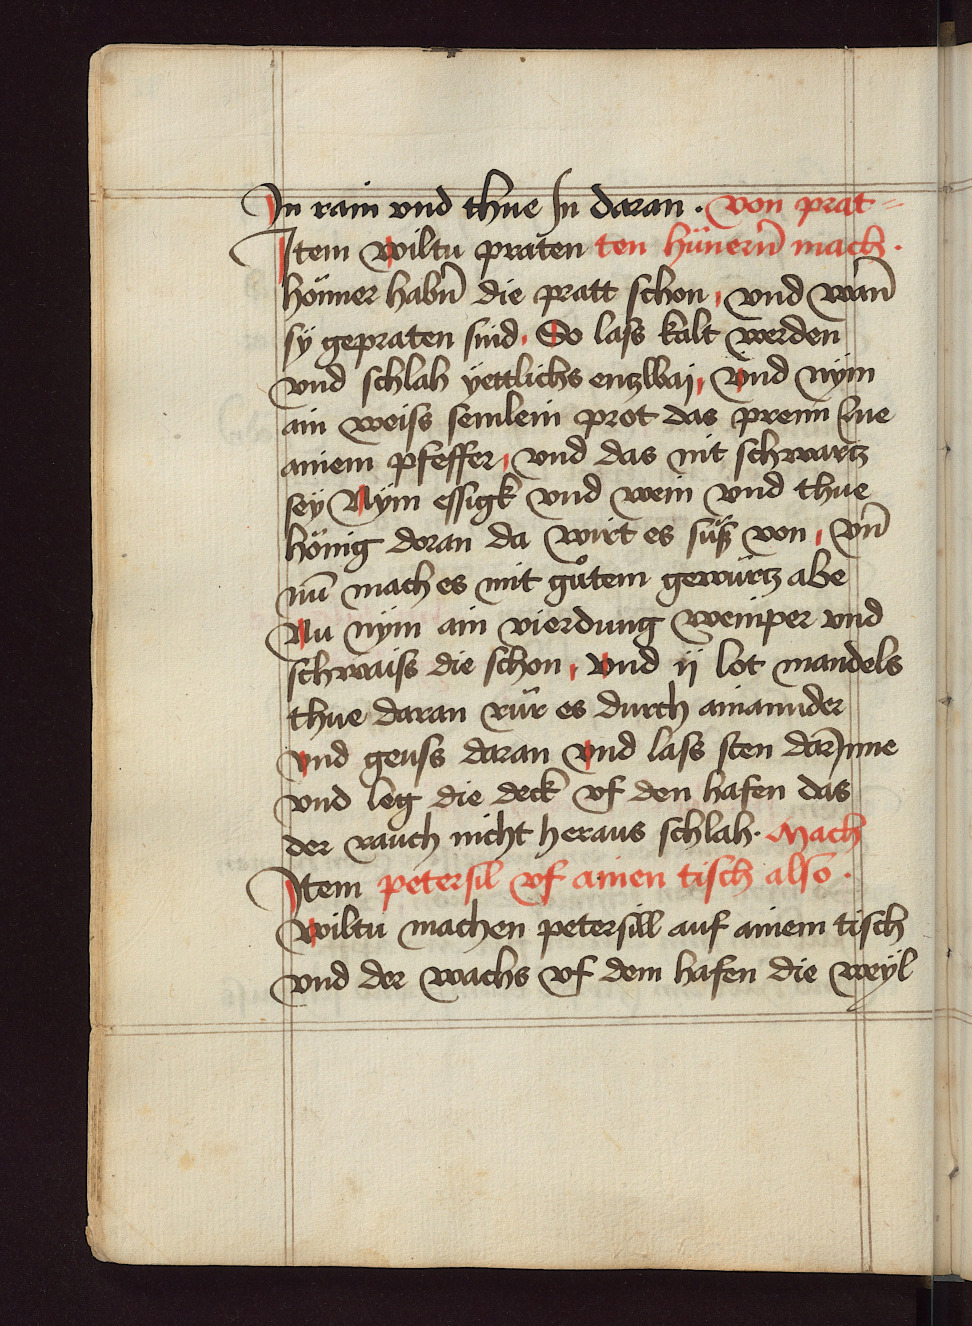 In rain vnd thue In daran . von prat=
Item wiltu praten ten hünern̄ mach .
hönner habn̄ die pratt schon , vnd wan̄
sy gepraten sind . So lass kalt werden
vnd schlah yettlichs enzwaj , vnd nym
ain weiss semlein prot das prenn Inne
ainem pfeffer , vnd das nit schwartz
sey Nym essigk vnd wein vnd thue
hönig doran da wirt es süsß von , vn̄
nū mach es mit gůtem gewürtz abe
Nu nym ain vierdung weinper vnd
schwaiss die schon , vnd ij lot mandels
thue daran rür es durch ainannder
vnd geuss daran vnd lass sten darInne
vnd leg die deck vf den hafen das
der rauch nicht heraus schlah . Mach
Item petersil vf ainen tisch also .
wiltu machen petersill auf ainem tisch
vnd der wachs vf dem hafen die weyl